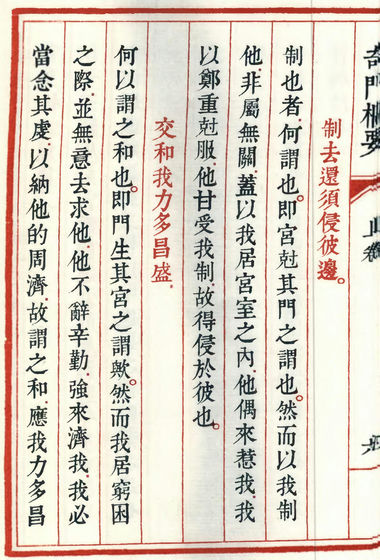 奇門樞要
制去還須侵彼邊。
制也者.何謂也。即宮尅其門之謂也。然而以我制
他.非屬無關.蓋以我居宮室之內.他偶來惹我.我
以鄭重尅服.他甘受我制.故得侵於彼也。
交和我力多昌盛.
何以謂之和也。即門生其宮之謂歟。然而我居窮困
之際.並無意去求他.他不辭辛勤.強來濟我.我必
當念其虔.以納他的周濟.故謂之和.應我力多昌